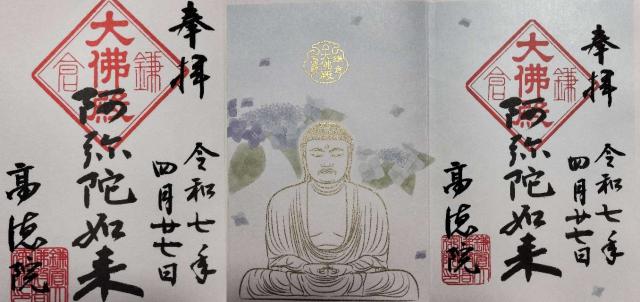 奉拝
大佛殿
鎌倉
阿弥陀如来
令和七年
四月廿七日
高徳院
大佛殿
奉拝
大佛殿
鎌倉
阿弥陀如来
令和七年
四月廿七日
高徳院